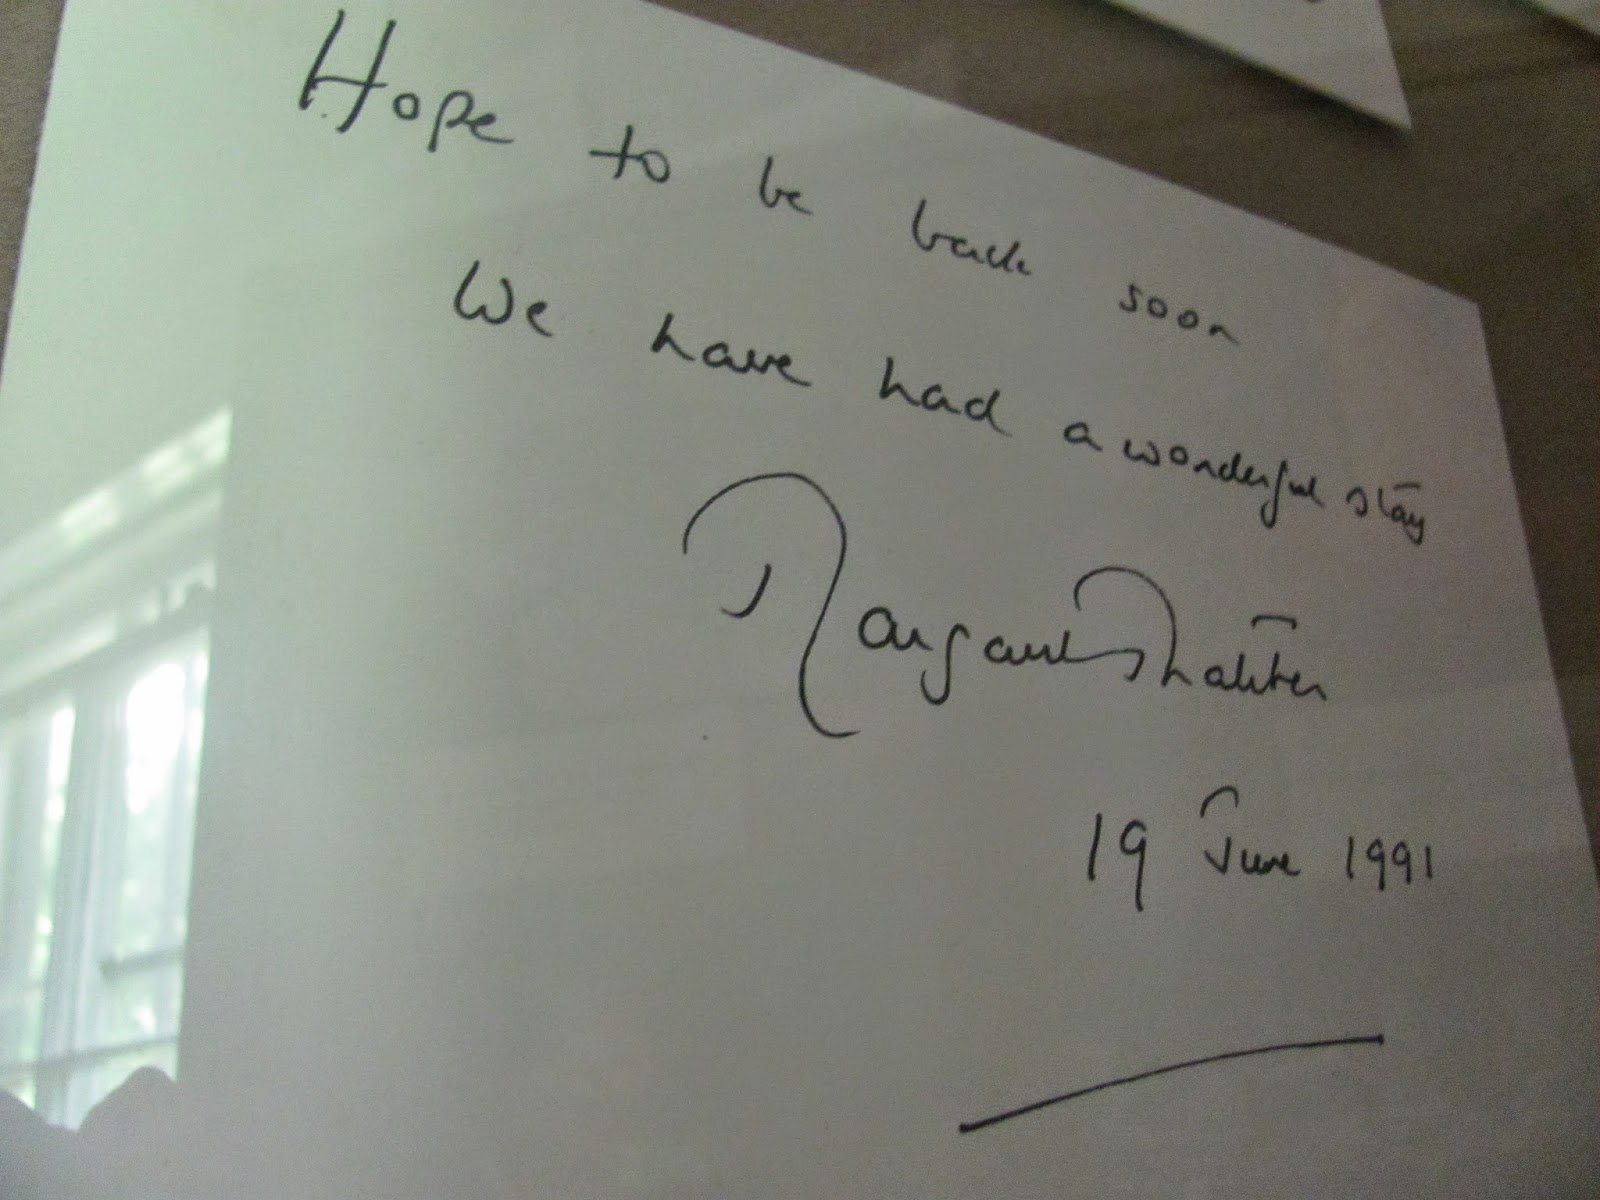 Hope to be back soon
We have had a wonderful stay
Margaret Thatcher
19 June 1991